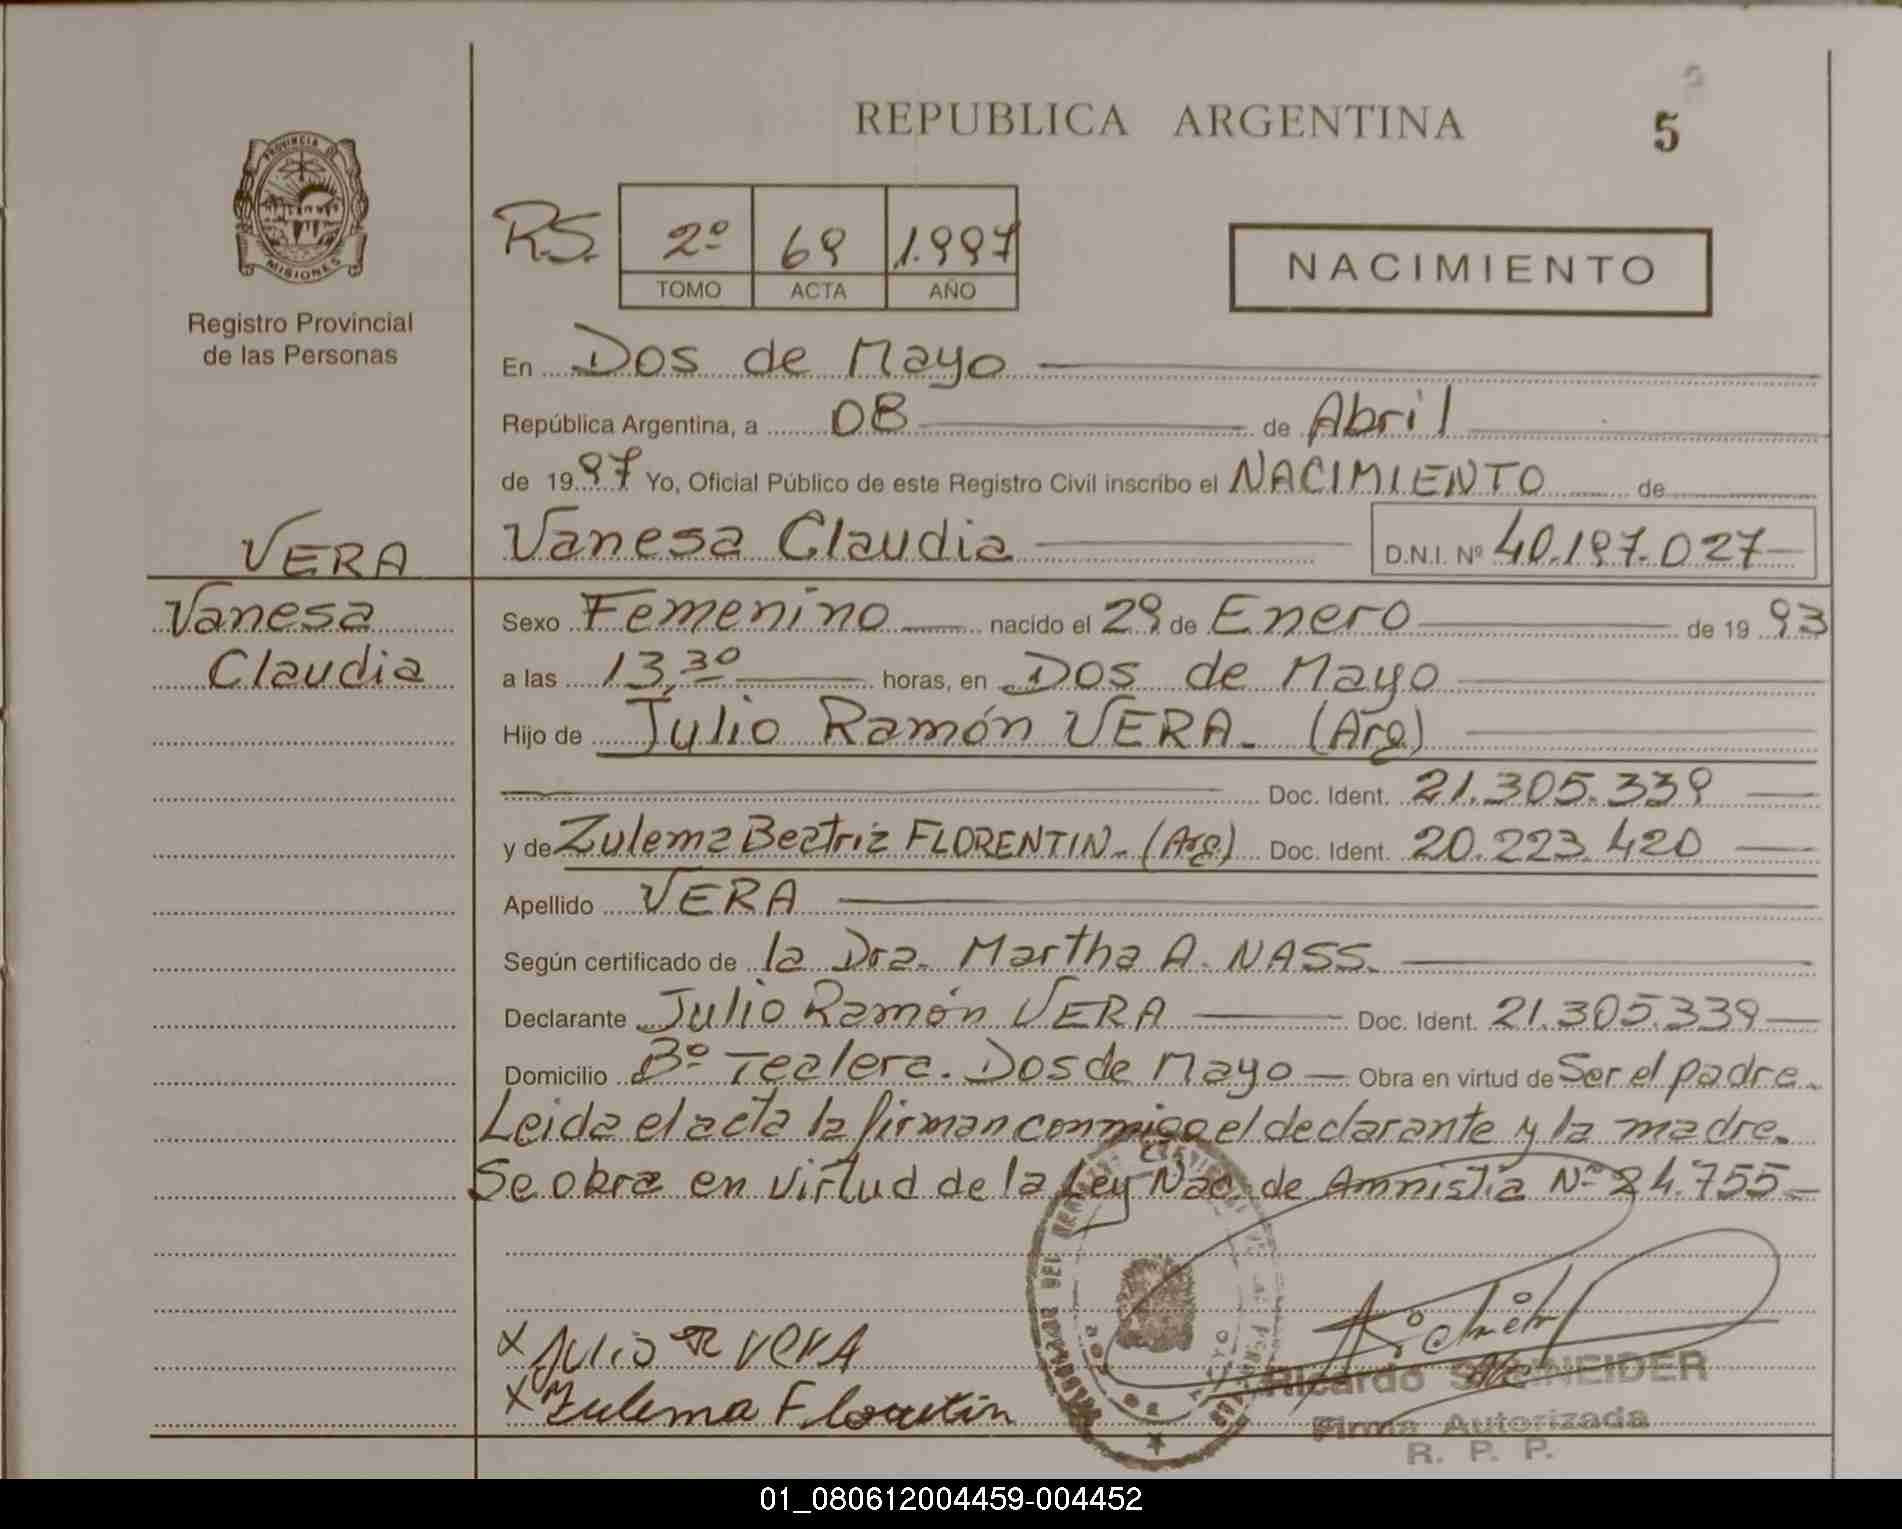 REPUBLICA ARGENTINA
5
PROVINCIA DE
MISIONES
Registro Provincial
de las Personas
R.S. 2º 69 1.997
TOMO ACTA AÑO
NACIMIENTO
En Dos de Mayo
República Argentina, a 08 de Abril
de 1997 Yo, Oficial Público de este Registro Civil inscribo el NACIMIENTO de
VERA
Vanesa Claudia D.N.I. Nº 40.197.027
Vanesa
Claudia
Sexo Femenino nacido el 29 de Enero de 1993
a las 13,30 horas, en Dos de Mayo
Hijo de Julio Ramón VERA. (Arg)
Doc. Ident. 21.305.339
y de Zulema Beatriz FLORENTIN. (Arg) Doc. Ident. 20.223.420
Apellido VERA
Según certificado de la Dra. Martha A. NASS.
Declarante Julio Ramón VERA Doc. Ident. 21.305.339
Domicilio Bº Tealera. Dos de Mayo Obra en virtud de Ser el padre.
Leida el acta la firman conmigo el declarante y la madre.
Se obra en virtud de la Ley Nac. de Amnistia Nº 24.755
x Julio R VerA
x Zulema Florentin
Ricardo SCHNEIDER
Firma Autorizada
R. P. P.
01_080612004459-004452